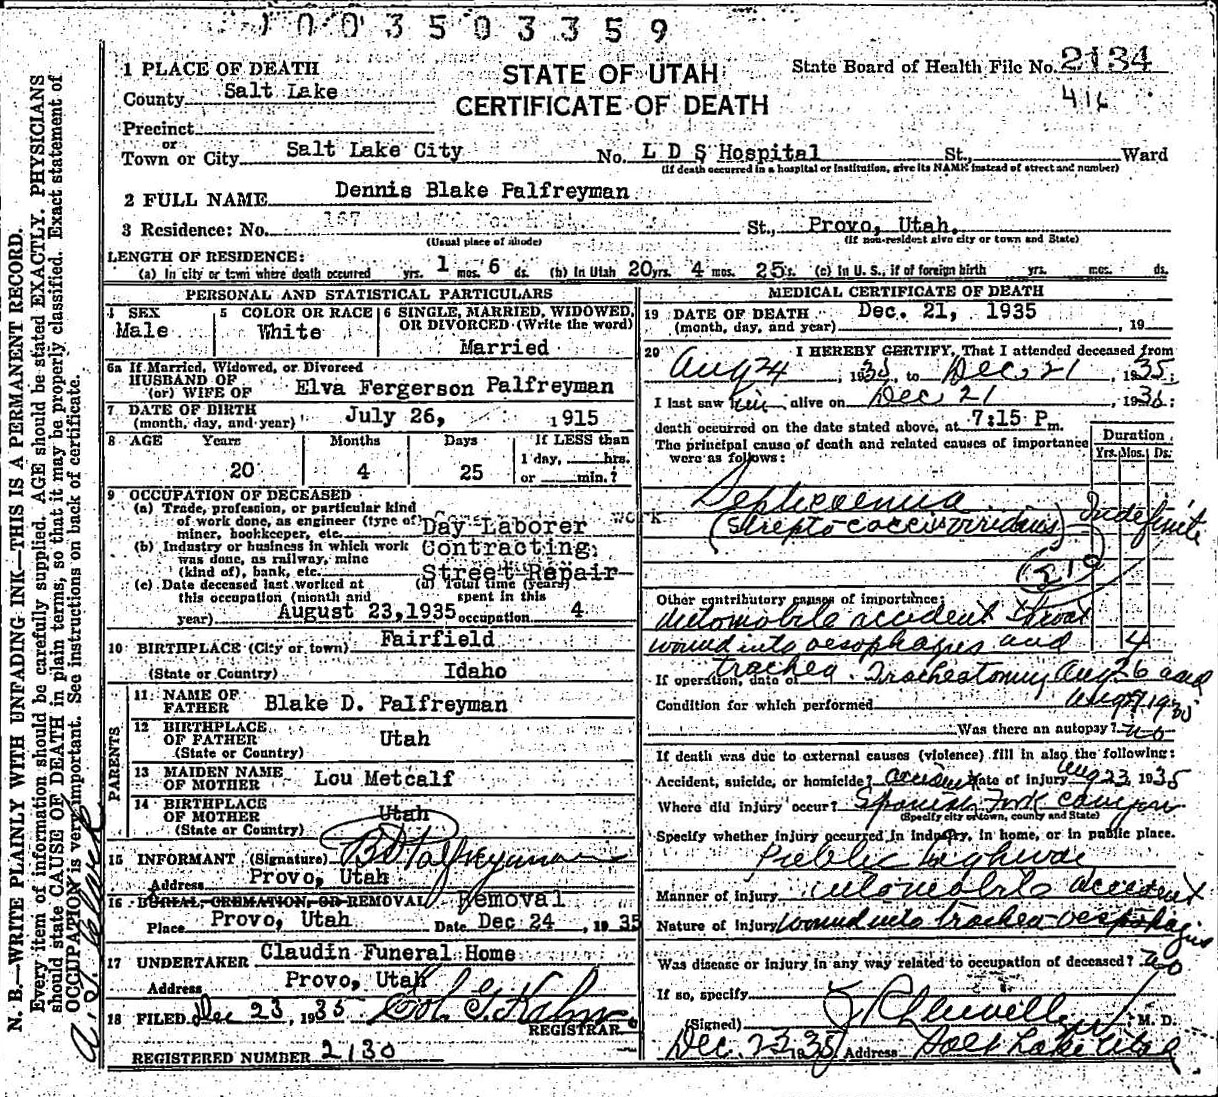 1003503359
1 PLACE OF DEATH
STATE OF UTAH
CERTIFICATE OF DEATH
State Board of Health File No. 2134
416
County Salt Lake
Precinct
or
Town or City Salt Lake City No. L D S Hospital St., Ward
(If death occurred in a hospital or institution, give its NAME instead of street and number)
2 FULL NAME Dennis Blake Palfreyman
3 Residence: No. 167 St., Provo, Utah.
(Usual place of abode) (If non-resident give city or town and State)
LENGTH OF RESIDENCE:
(a) In city or town where death occurred yrs. 1 mos. 6 ds. (b) In Utah 20 yrs. 4 mos. 25 s. (c) In U. S., if of foreign birth yrs. mos. ds.
PERSONAL AND STATISTICAL PARTICULARS
4 SEX 5 COLOR OR RACE 6 SINGLE, MARRIED, WIDOWED, OR DIVORCED (Write the word)
Male White Married
6a If Married, Widowed, or Divorced
HUSBAND OF
(or) WIFE OF Elva Fergerson Palfreyman
7 DATE OF BIRTH
(month, day, and year) July 26, 1915
8 AGE Years Months Days If LESS than
1 day, hrs.
20 4 25 or min.?
9 OCCUPATION OF DECEASED
(a) Trade, profession, or particular kind
of work done, as engineer (type of
miner, bookkeeper, etc. Day Laborer WORK
(b) Industry or business in which work
was done, as railway, mine
(kind of), bank, etc. Contracting,
Street Repair
(c) Date deceased last worked at
this occupation (month and
year) August 23,1935
(d) Total time (years)
spent in this
occupation 4
10 BIRTHPLACE (City or town) Fairfield
(State or Country) Idaho
PARENTS
11 NAME OF
FATHER Blake D. Palfreyman
12 BIRTHPLACE
OF FATHER Utah
(State or Country)
13 MAIDEN NAME
OF MOTHER Lou Metcalf
14 BIRTHPLACE
OF MOTHER Utah
(State or Country)
15 INFORMANT (Signature) B D Palfreyman
Address Provo, Utah
16 BURIAL, CREMATION, OR REMOVAL Removal
Place Provo, Utah Date Dec 24, 1935
17 UNDERTAKER Claudin Funeral Home
Address Provo, Utah
18 FILED Dec 23, 1935
REGISTRAR
REGISTERED NUMBER 2130
MEDICAL CERTIFICATE OF DEATH
19 DATE OF DEATH Dec. 21, 1935
(month, day, and year) , 19
20 I HEREBY CERTIFY, That I attended deceased from
Aug 24, 1935, to Dec. 21, 1935;
I last saw him alive on Dec 21, 1935;
death occurred on the date stated above, at 7:15 P. m.
The principal cause of death and related causes of importance
were as follows:
Duration
Yrs. Mos. Ds.
Septicaemia
(Streptococcus viridans) Indefinite
(210)
Other contributory causes of importance:
automobile accident Throat
wound into oesophagus and 4
trachea. Tracheotomy Aug 26 and
If operation, date of
Condition for which performed
Was there an autopsy? no
If death was due to external causes (violence) fill in also the following:
Accident, suicide, or homicide? accident Date of injury Aug 23, 1935
Where did injury occur? Spanish Fork canyon
(Specify city or town, county and State)
Specify whether injury occurred in industry, in home, or in public place.
Public highway
Manner of injury automobile accident
Nature of injury wound into trachea oesophagus
Was disease or injury in any way related to occupation of deceased? no
If so, specify
(Signed) M. D.
Dec. 22 1935 Address Salt Lake Utah
N. B.—WRITE PLAINLY WITH UNFADING INK—THIS IS A PERMANENT RECORD.
Every item of information should be carefully supplied. AGE should be stated EXACTLY. PHYSICIANS
should state CAUSE OF DEATH in plain terms, so that it may be properly classified. Exact statement of
OCCUPATION is very important. See instructions on back of certificate.